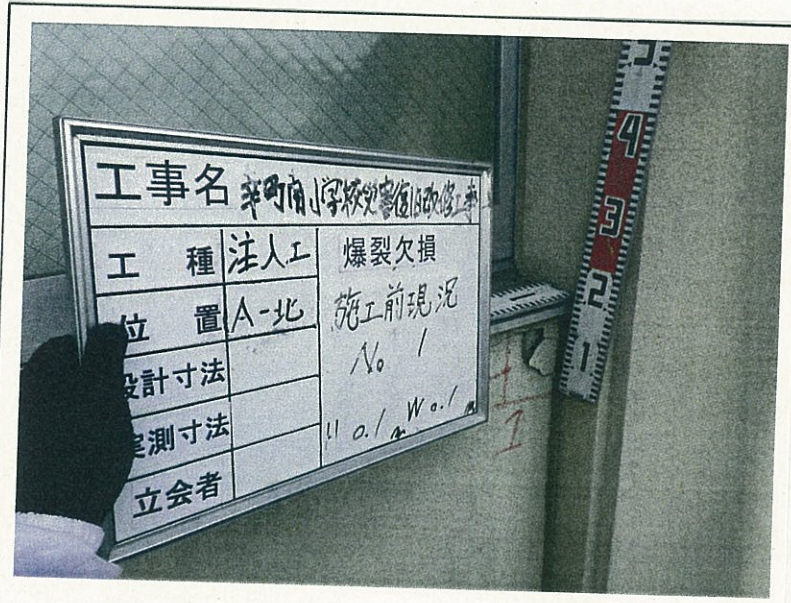 工事名 幸町南小学校災害復旧改修工事
工種 注入工
爆裂欠損
位置 A-北
施工前現況
No 1
設計寸法
実測寸法
H 0.1m W 0.1m
立会者
5
4
3
2
1
1